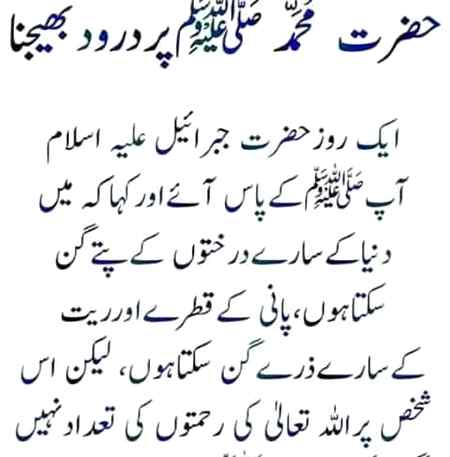 حضرت محمدؐ ﷺ پر درود بھیجنا
ایک روز حضرت جبرائیل علیہ اسلام
آپ ﷺ کے پاس آئے اور کہا کہ میں
دنیا کے سارے درختوں کے پتے گن
سکتا ہوں، پانی کے قطرے اور ریت
کے سارے ذرے گن سکتا ہوں، لیکن اس
شخص پر اللہ تعالیٰ کی رحمتوں کی تعداد نہیں